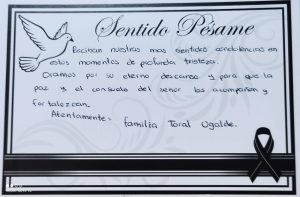 Sentido Pésame
Reciban nuestras mas sentidas condolencias en
estos momentos de profunda tristeza.
Oramos por su eterno descanso y para que la
paz y el consuelo del señor los acompañen y
fortalezcan.
Atentamente: familia Toral Ugalde.